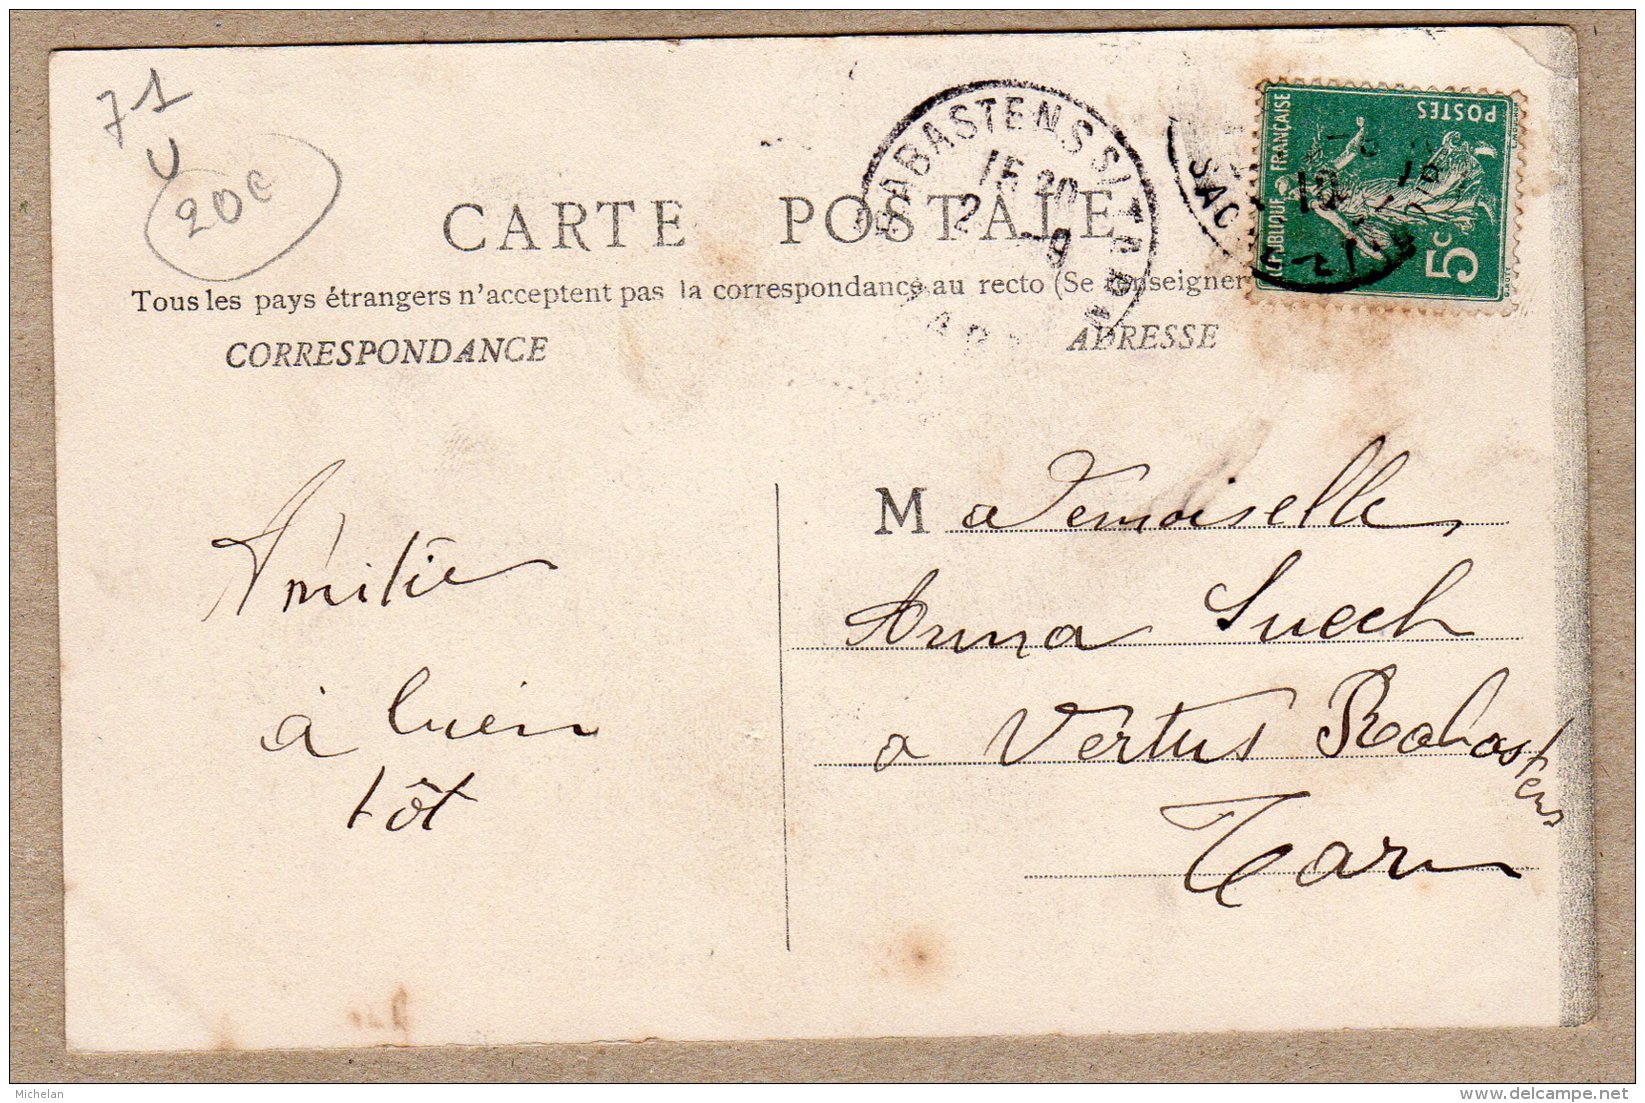 71
U
20c
CARTE POSTALE
Tous les pays étrangers n'acceptent pas la correspondance au recto (Se renseigner
CORRESPONDANCE
ADRESSE
RABASTENS S/TARN
TARN
RÉPUBLIQUE FRANÇAISE
POSTES
5c
Amitié
à bien
tôt
Mademoiselle
Anna Suech
a Vertus Rabastens
Tarn
Michelan
www.delcampe.net